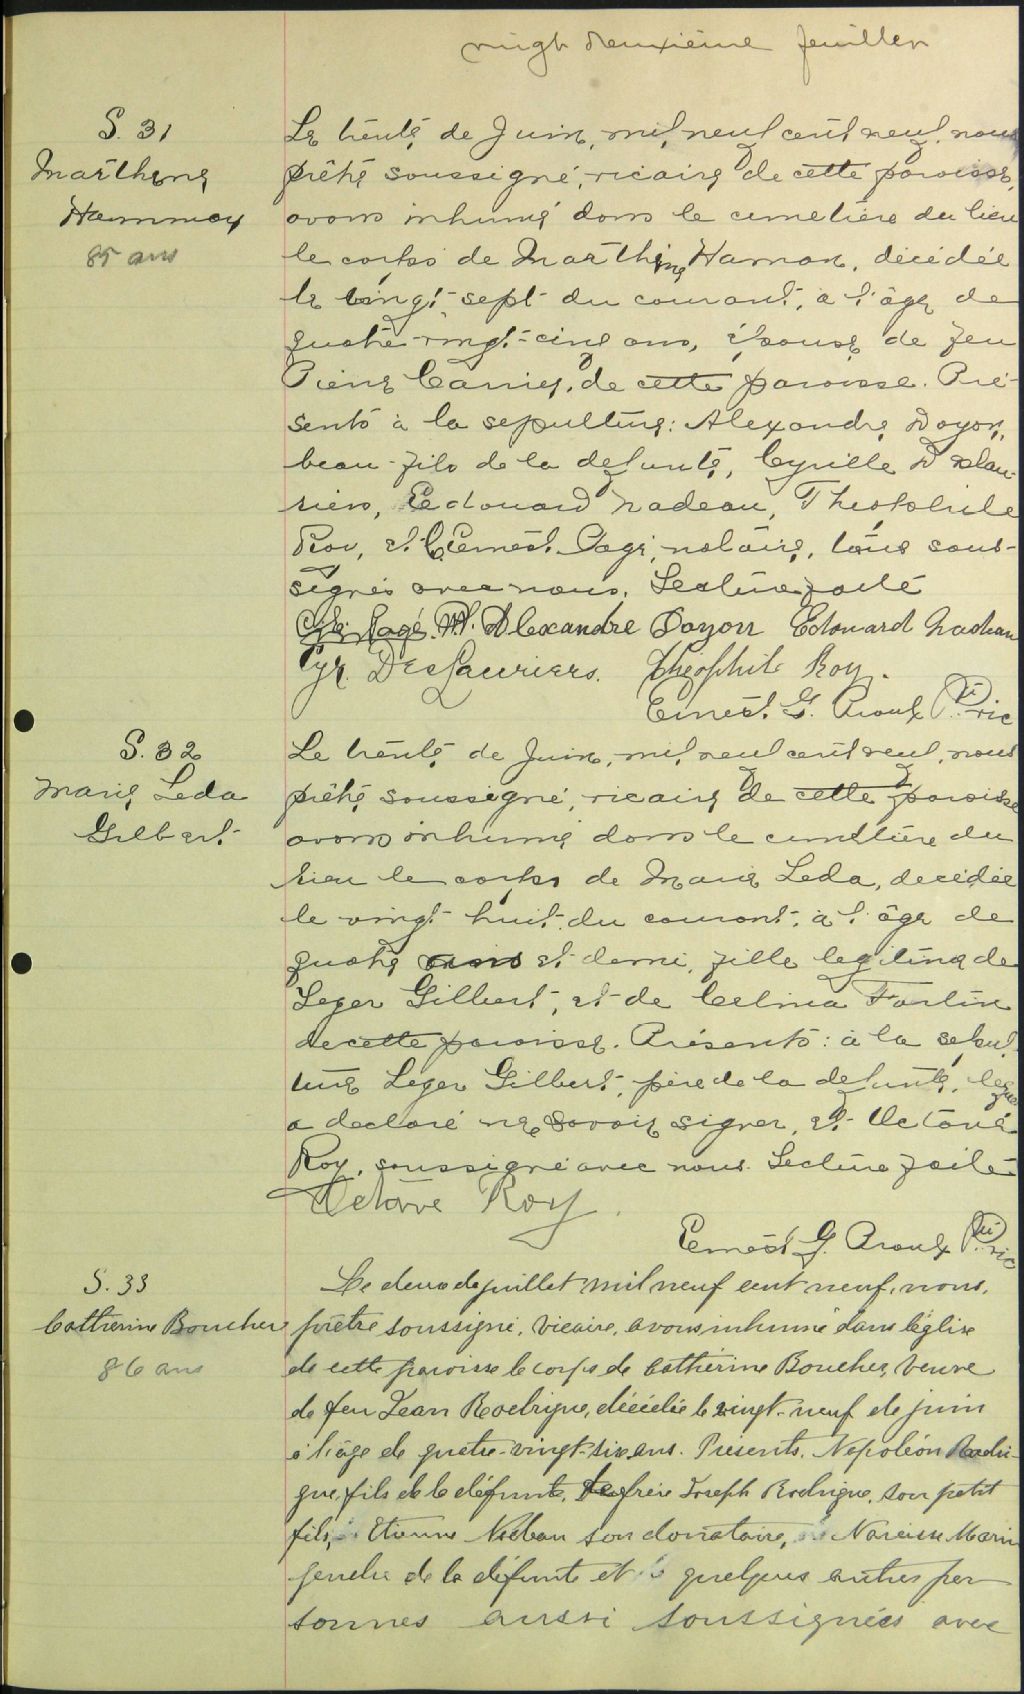 vingt deuxième feuillet
S. 31
Marthene
Hammoy
85 ans
Le trente de Juin, mil neuf cent neuf, nous
prêtre soussigné, vicaire de cette paroisse,
avons inhumé dans le cimetière du lieu
le corps de Marthine Hamon, décédée
le vingt-sept du courant, à l'âge de
quatre-vingt-cinq ans, épouse de feu
Pierre Carrier, de cette paroisse. Pré-
sents à la sépulture: Alexandre Doyon,
beau-fils de la defunte, Cyrille Deslau-
riers, Edouard Nadeau, Théophile
Roy, et Ernest Pagé, notaire, tous sous-
signés avec nous. Lecture faite
Pagé N.P. Alexandre Doyon Edouard Nadeau
Cyr. DesLauriers. Théophile Roy.
Ernest G. Proulx Ptre Vic
S. 32
Marie Leda
Gilbert
Le trente de Juin, mil neuf cent neuf, nous
prêtre soussigné, vicaire de cette paroisse
avons inhumé dans le cimetière du
lieu le corps de Marie Leda, decédée
le vingt-huit du courant, à l'âge de
quatre ans et demi, fille legitime de
Leger Gilbert, et de Celina Fortin
de cette paroisse. Présents: à la sepul-
ture Leger Gilbert, père de la defunte, lequel
a declaré ne savoir signer, et Octave
Roy, soussigné avec nous. Lecture faite
Octave Roy.
Ernest G. Proulx Ptre Vic
S. 33
Catherine Boucher
86 ans
Le deux de juillet mil neuf cent neuf, nous,
prêtre soussigné, vicaire, avons inhumé dans l'église
de cette paroisse le corps de Cathérine Boucher, veuve
de feu Jean Rodrigue, décédée le vingt-neuf de juin
à l'âge de quatre-vingt-six ans. Présents. Napoléon Rodri-
gue, fils de la défunte, frère Joseph Rodrigue, son petit
fils, Etienne son donataire, Narcisse Marin
gendre de la défunte et quelques autres per
sonnes aussi soussignées avec